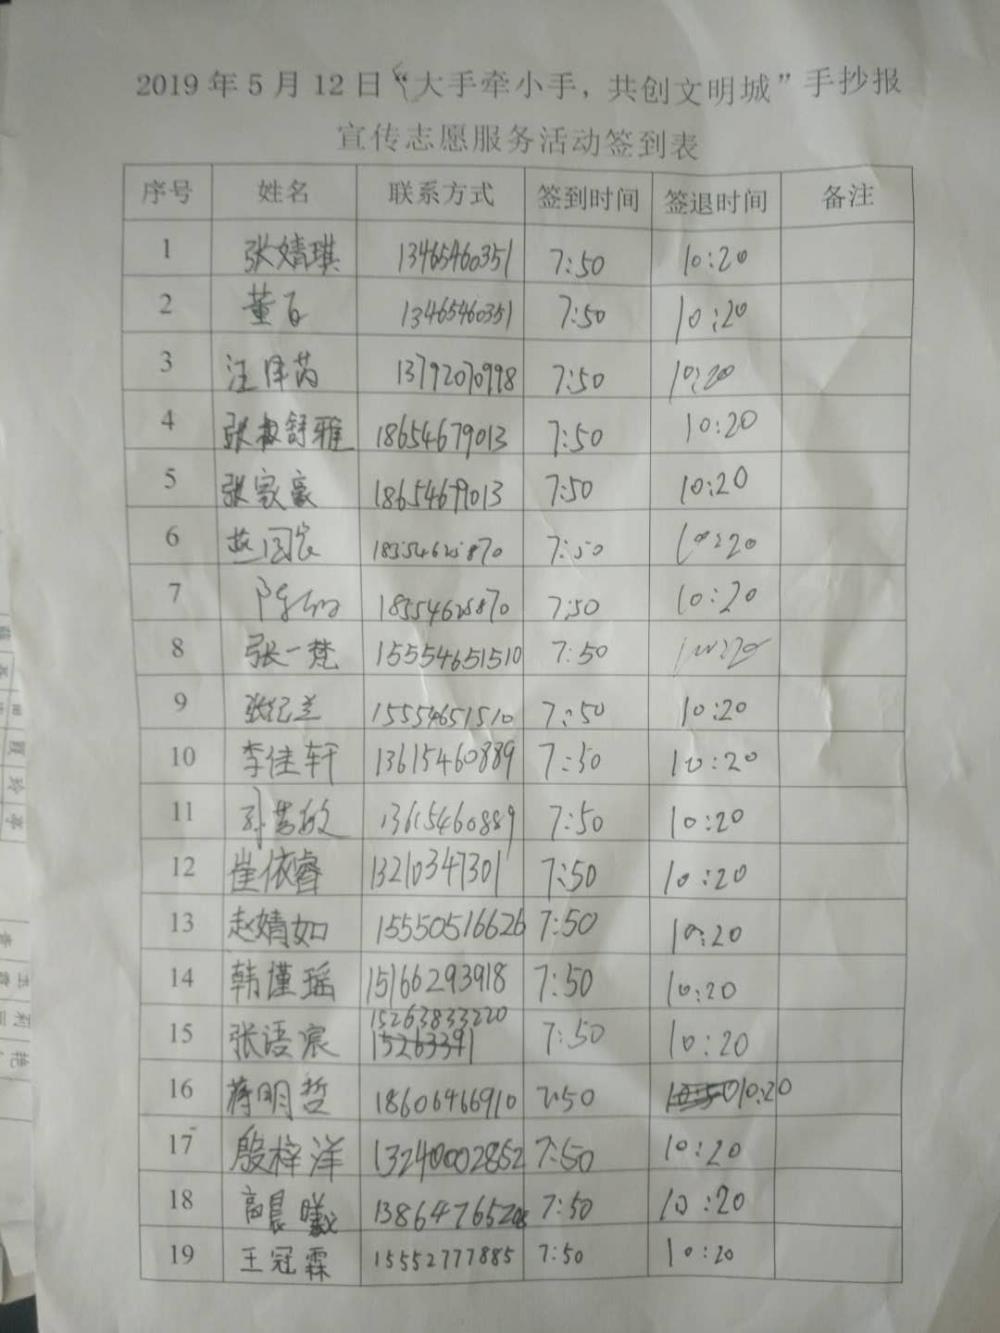 2019年5月12日“大手牵小手，共创文明城”手抄报
宣传志愿服务活动签到表
序号 姓名 联系方式 签到时间 签退时间 备注
1 张婧琪 13465460351 7:50 10:20
2 董 13465460351 7:50 10:20
3 汪泽芮 13792070998 7:50 10:20
4 张舒雅 18654679013 7:50 10:20
5 张家豪 18654679013 7:50 10:20
6 18354628870 7:50 10:20
7 18354628870 7:50 10:20
8 张一梵 15554651510 7:50 10:20
9 张纪兰 15554651510 7:50 10:20
10 李佳轩 13615460889 7:50 10:20
11 孙慧敏 13615460889 7:50 10:20
12 崔依睿 13210347301 7:50 10:20
13 赵婧如 15550516626 7:50 10:20
14 韩瑾瑶 15166293918 7:50 10:20
15 张语宸 15263833220 7:50 10:20
16 蒋明哲 18606466910 7:50 10:20
17 殷梓洋 13240002852 7:50 10:20
18 高晨曦 13864765208 7:50 10:20
19 王冠霖 15552777885 7:50 10:20